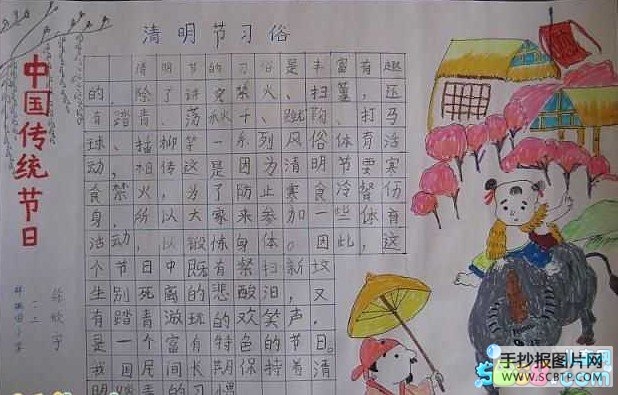 清明节习俗
中国传统节日
清明节的习俗是丰富有趣
的，除了讲究禁火、扫墓，还
有踏青、荡秋千、蹴鞠、打马
球、插柳等一系列风俗体育活
动，相传这是因为清明节要寒
食禁火，为了防止寒食冷餐伤
身，所以大家来参加一些体育
活动，以锻炼身体。因此，这
个节日中既有祭扫新坟
生别死离的悲酸泪，又
有踏青游玩的欢笑声，
是一个富有特色的节日。
我国民间长期保持着清
明踏青的习惯
二二
手抄报图片网
WWW.SCBTP.COM